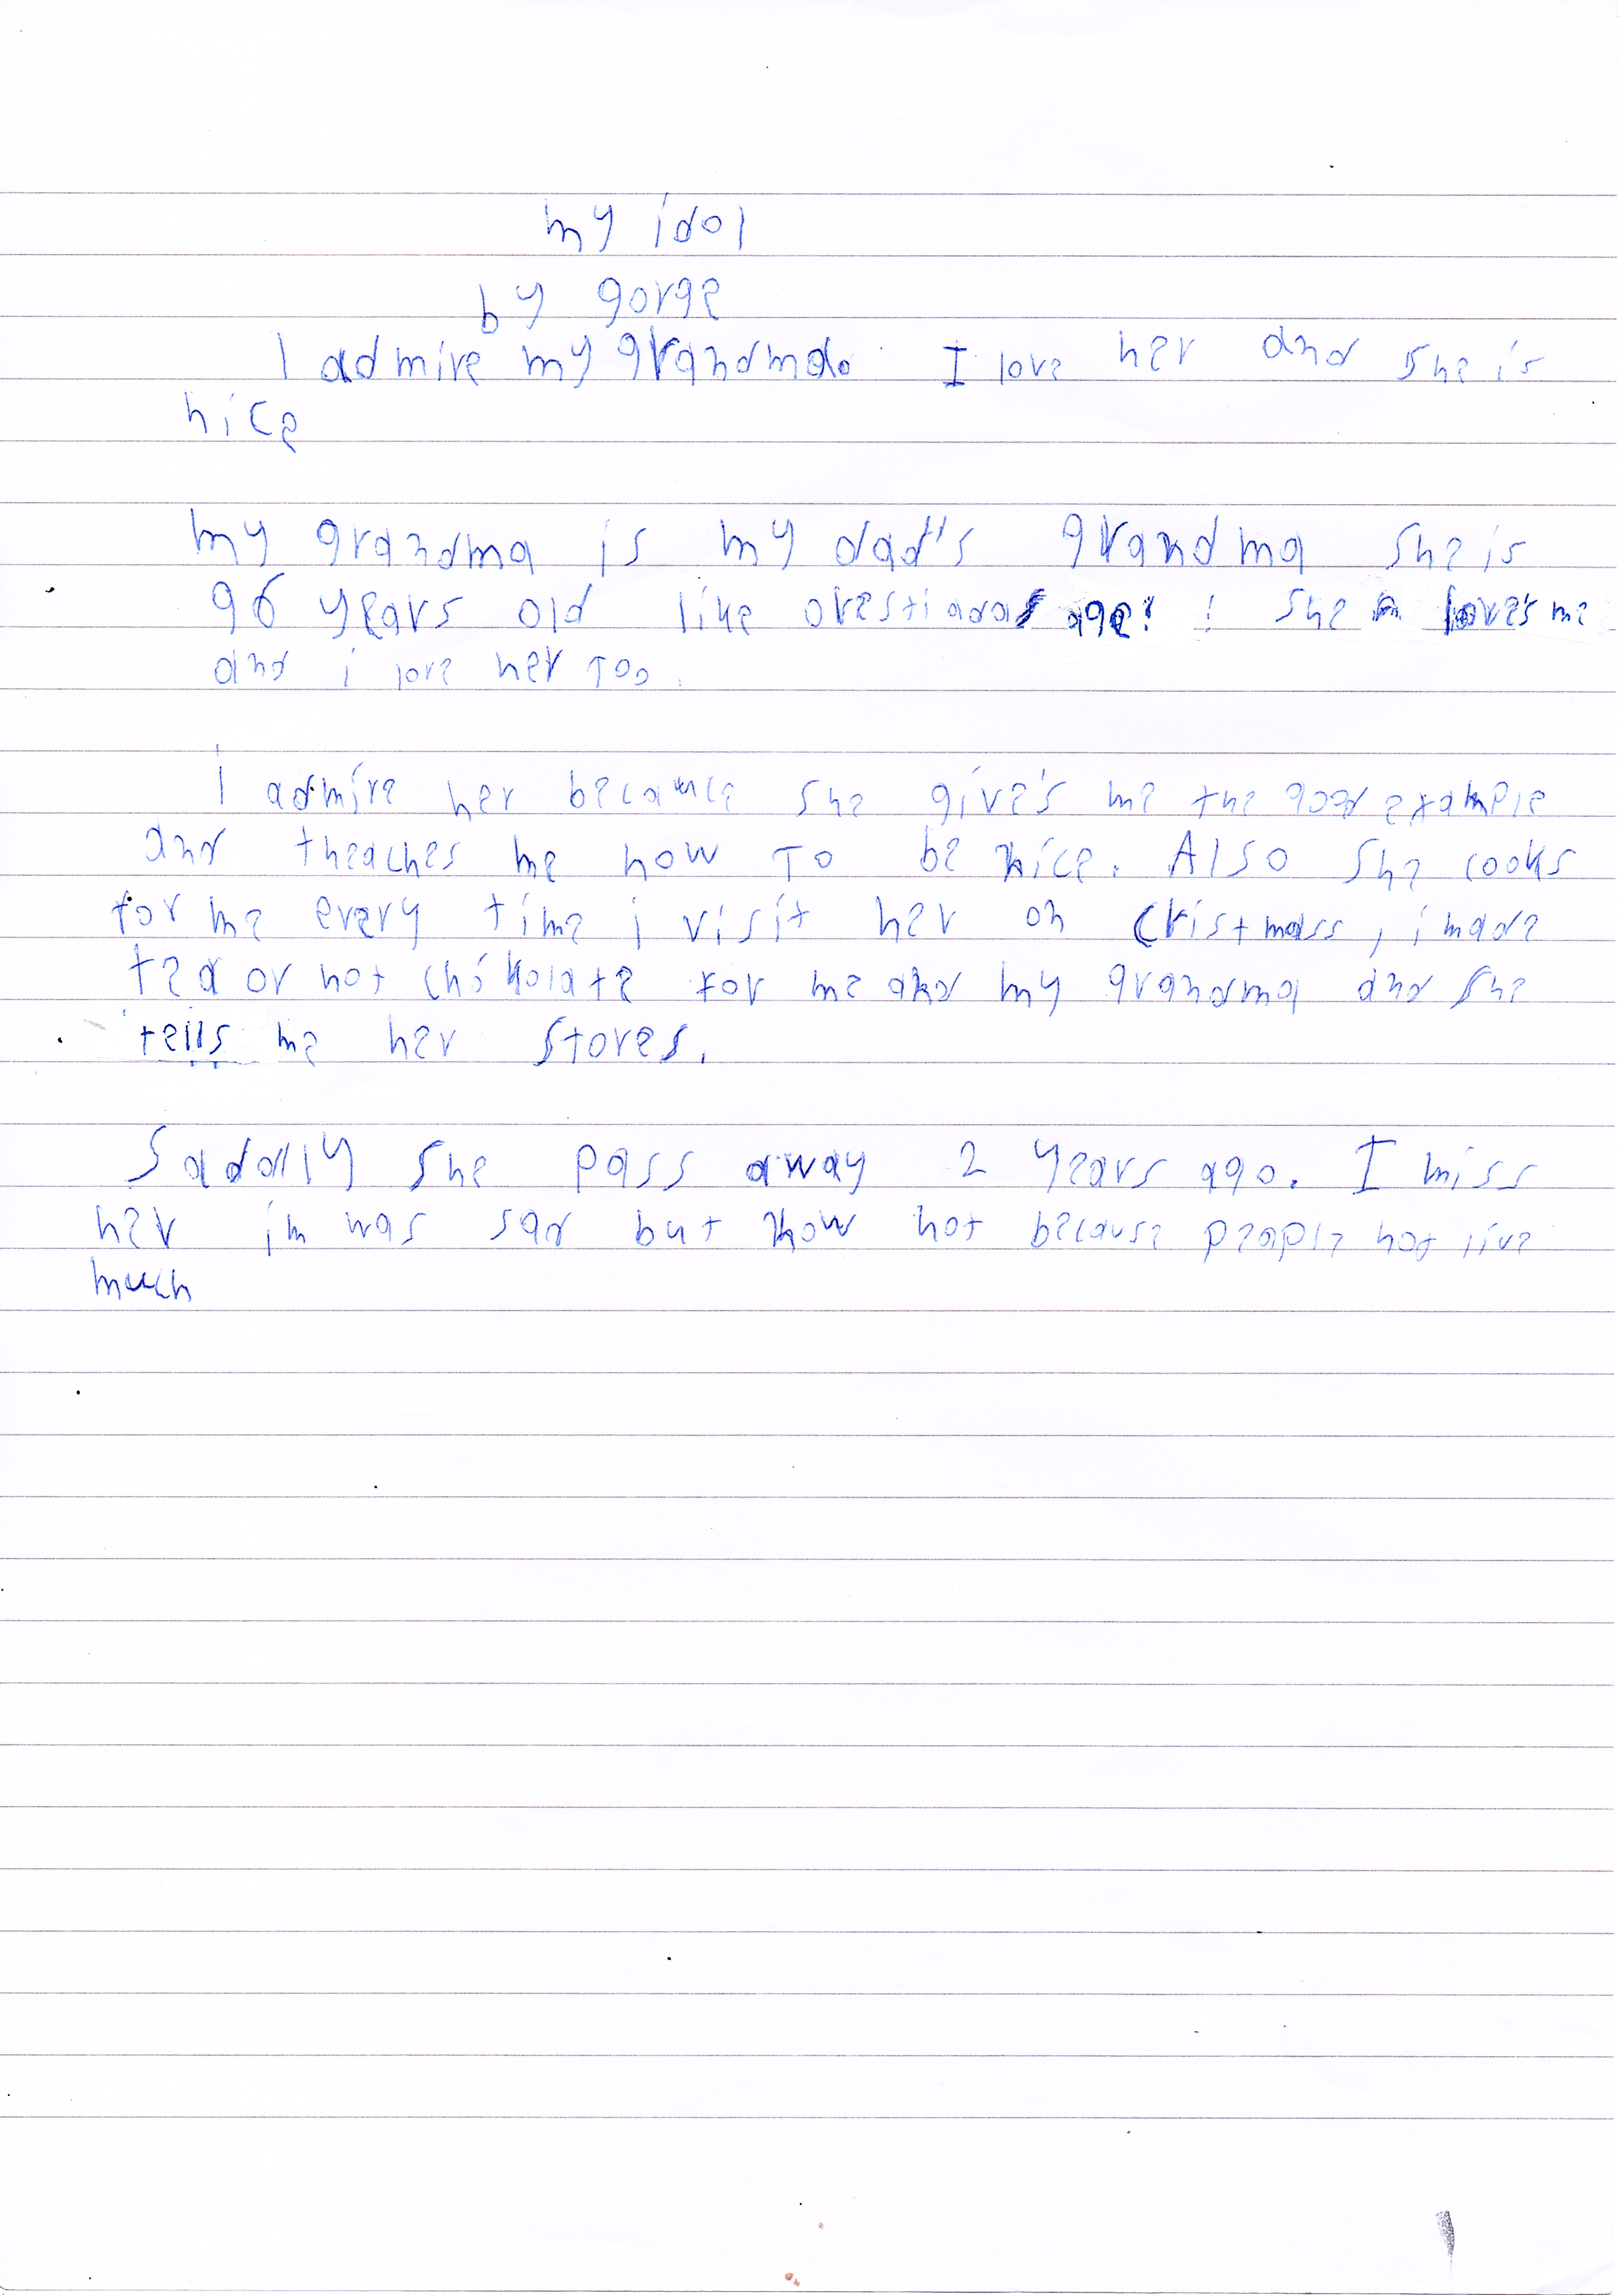 my idol
by gorge
I admire my grandma. I love her and she is
nice
my grandma is my dad's grandma she is
96 years old like age! ! she loves me
and i love her too.
I admire her because she give's me the good example
and theaches me how To be nice. Also she cooks
for me every time i visit her on Cristmass, i made
tea or hot chókolate for me and my grandma and she
tells me her stores.
Sadally she pass away 2 years ago. I miss
her im was sad but now not because people not live
much